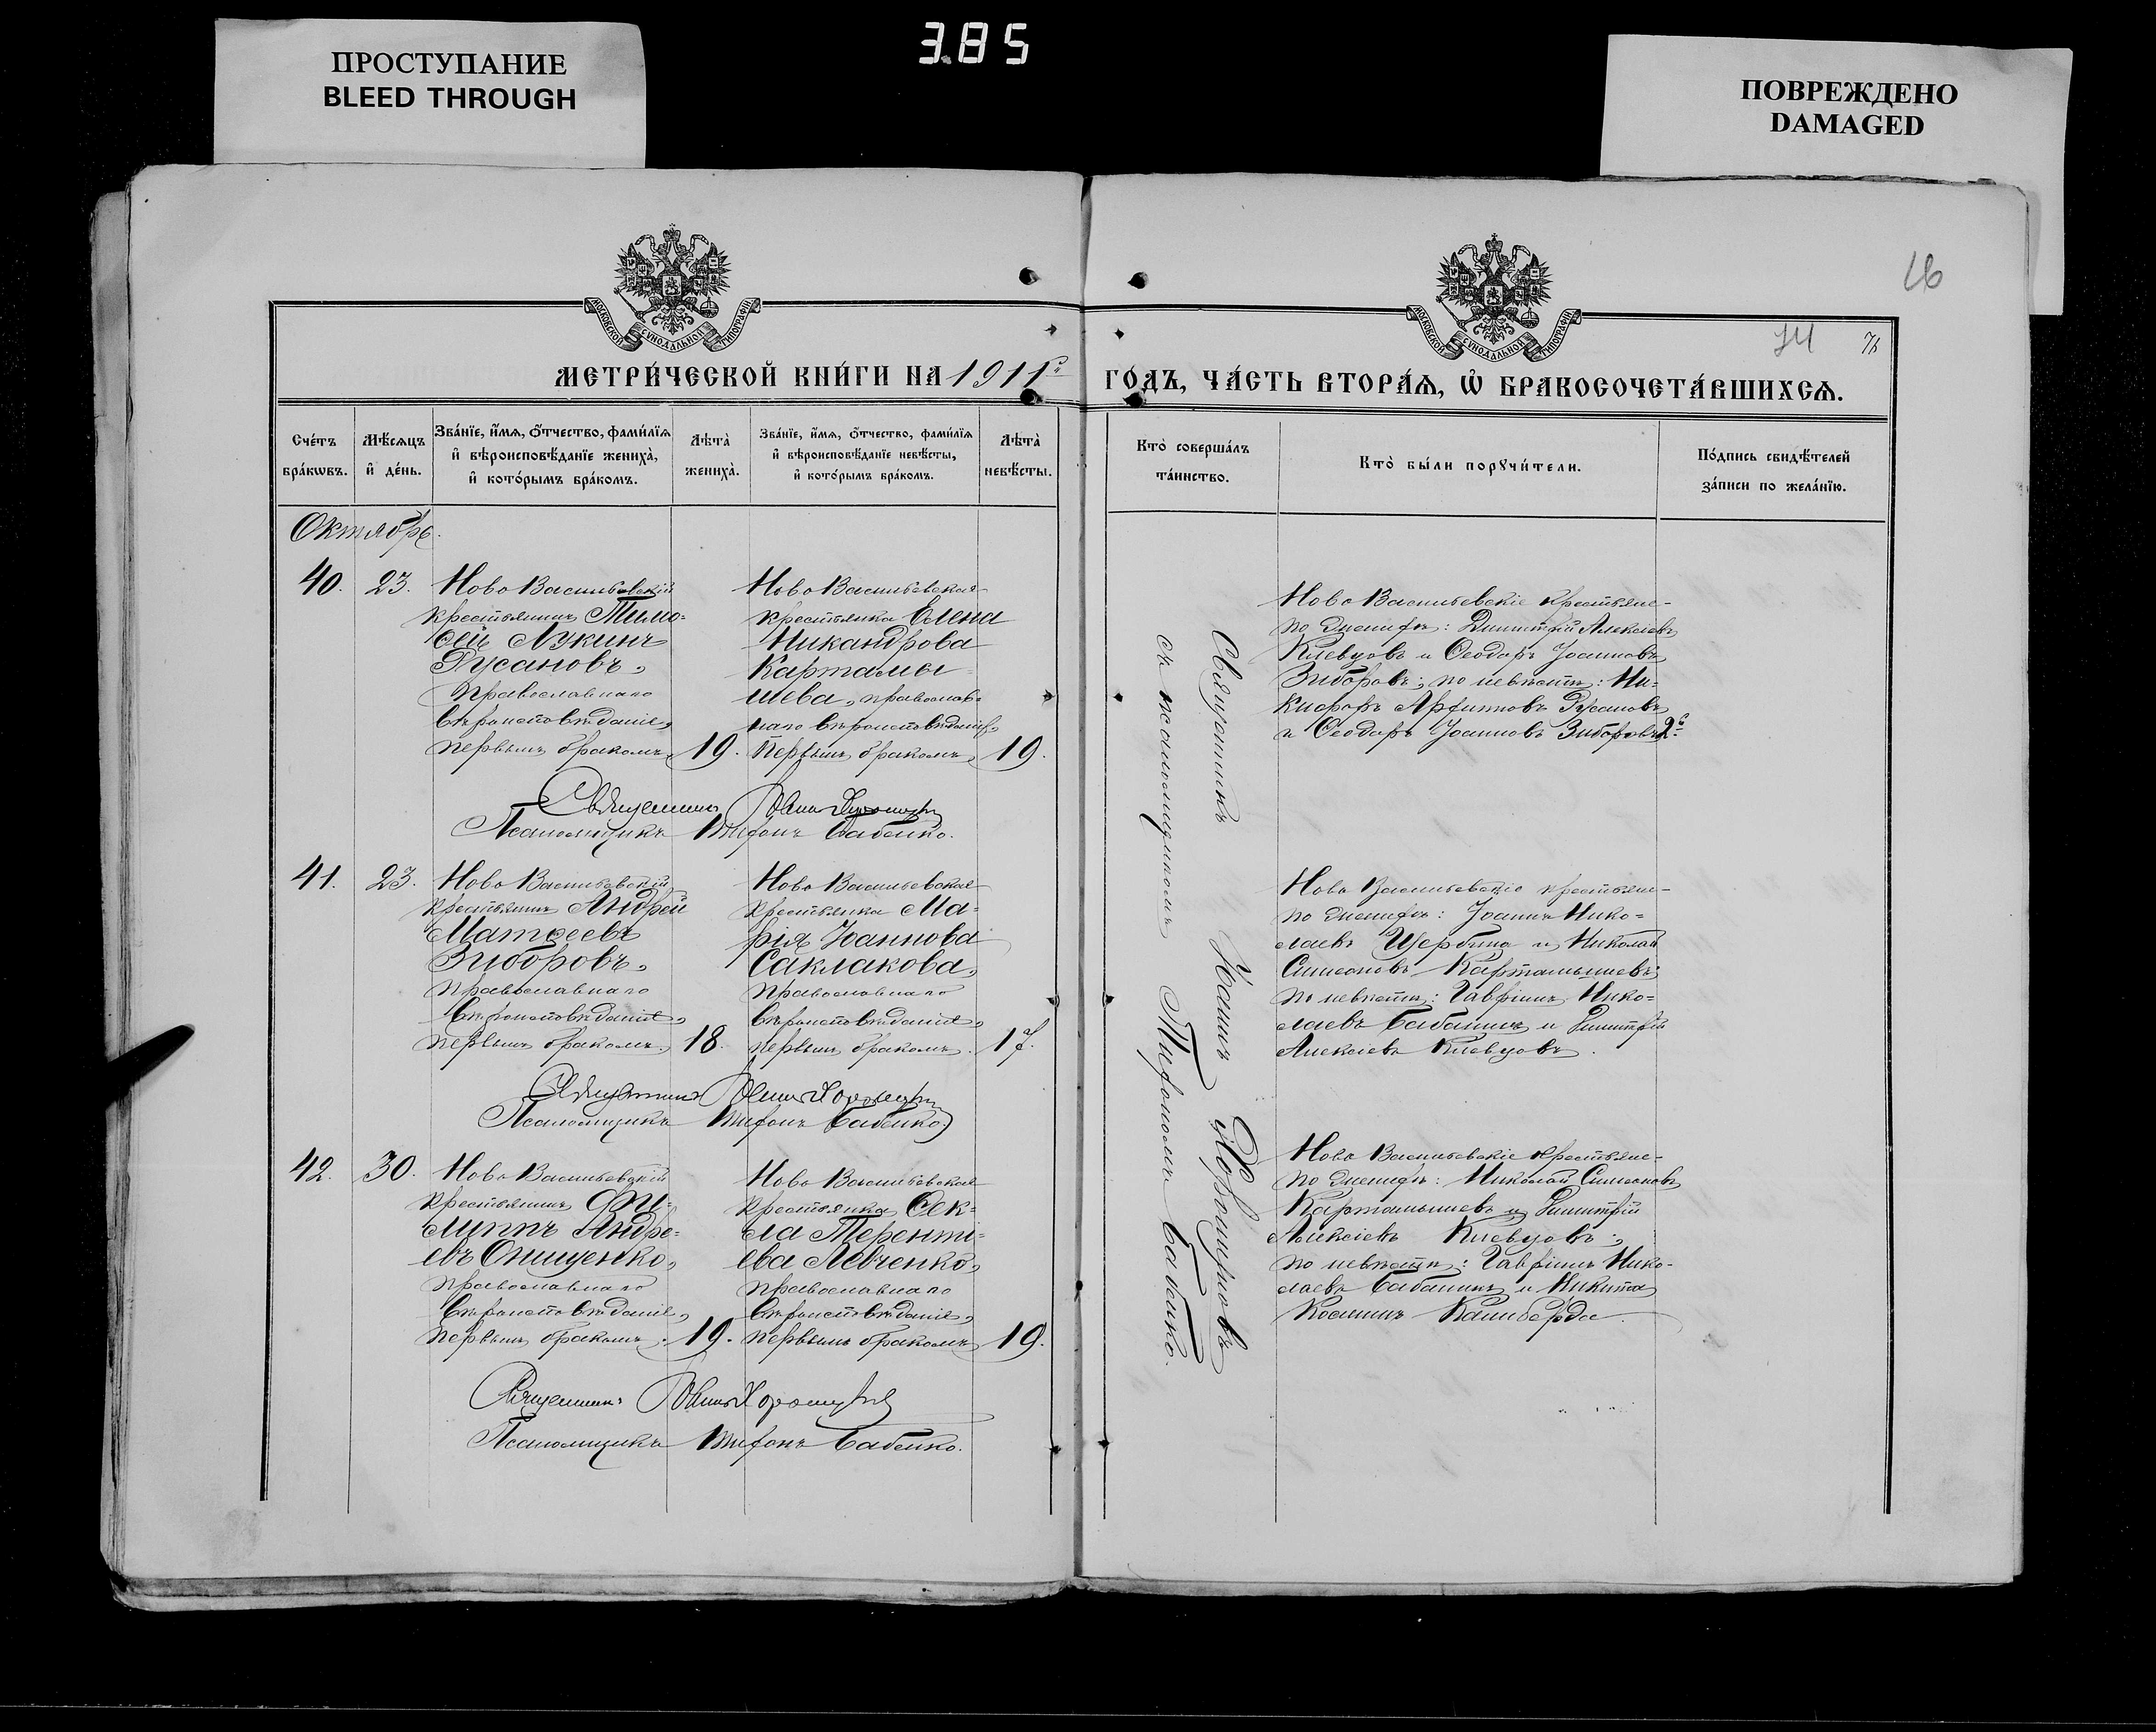 ПРОСТУПАНИЕ
BLEED THROUGH
385
ПОВРЕЖДЕНО
DAMAGED
16
74
МОСКОВСКОЙ СѴНОДАЛЬНОЙ ТИПОГРАФІИ
МОСКОВСКОЙ СѴНОДАЛЬНОЙ ТИПОГРАФІИ
МЕТРИ́ЧЕСКОЙ КНИ́ГИ НА 1911 г. ГО́ДЪ, ЧА́СТЬ ВТОРА́Ѧ, Ѡ БРАКОСОЧЕТА́ВШИХСѦ.
Сче́тъ бра́кѡвъ.
Мѣ́сѧцъ и де́нь.
Зва́нїе, и́мѧ, о́тчество, фами́лїѧ и вѣроисповѣ́данїе жениха̀, и кото́рымъ бра́комъ.
Лѣта̀ жениха̀.
Зва́нїе, и́мѧ, о́тчество, фами́лїѧ и вѣроисповѣ́данїе невѣ́сты, и кото́рымъ бра́комъ.
Лѣта̀ невѣ́сты.
Кто̀ соверша́лъ та́инство.
Кто̀ бы́ли порꙋчи́тели.
По́дпись свидѣ́телей за́писи по жела́нїю.
Октябрь.
40. 23.
Ново Васильевскій
крестьянинъ Тимо=
ѳей Лукинъ
Русановъ,
православнаго
вѣроисповѣданія,
первымъ бракомъ,
19.
Ново Васильевская
крестьянка Елена
Никандрова
Картамы=
шева, православ=
наго вѣроисповѣданія,
первымъ бракомъ,
19.
Ново Васильевскіе крестьяне-
по женихѣ: Димитрій Алексіевъ
Клевцовъ и Ѳеодоръ Іоанновъ
Зиборовъ; по невѣстѣ: Ни=
кифоръ Русановъ
и Ѳеодоръ Іоанновъ Зиборовъ 2й.
Священникъ
Псаломщикъ Тифонъ Бабенко.
41. 23.
Ново Васильевскій
крестьянинъ Андрей
Матѳеевъ
Зиборовъ,
православнаго
вѣроисповѣданія,
первымъ бракомъ.
18.
Ново Васильевская
крестьянка Ма=
рія Іоаннова
Саклакова,
православнаго
вѣроисповѣданія,
первымъ бракомъ.
17.
Ново Васильевскіе крестьяне-
по женихѣ: Іоаннъ Нико=
лаевъ Щербина и Николай
Симеоновъ Картамышевъ;
по невѣстѣ: Гавріилъ Нико=
лаевъ Бабанинъ и Димитрій
Алексіевъ Клевцовъ.
Священникъ
Псаломщикъ Тифонъ Бабенко.
42. 30.
Ново Васильевскій
крестьянинъ Фи=
липпъ Андре=
евъ Онищенко,
православнаго
вѣроисповѣданія,
первымъ бракомъ.
19.
Ново Васильевская
крестьянка Ѳек=
ла Терентi=
ева Левченко,
православнаго
вѣроисповѣданія,
первымъ бракомъ
19.
Ново Васильевскіе крестьяне-
по женихѣ: Николай Симеоновъ
Картамышевъ и Димитрій
Алексіевъ Клевцовъ;
по невѣстѣ: Гавріилъ Нико-
лаевъ Бабанинъ и Никита
Косминъ Калиберда.
Священникъ
Псаломщикъ Тифонъ Бабенко.
Священникъ Іоаннъ
съ псаломщикомъ Тифономъ Бабенко.